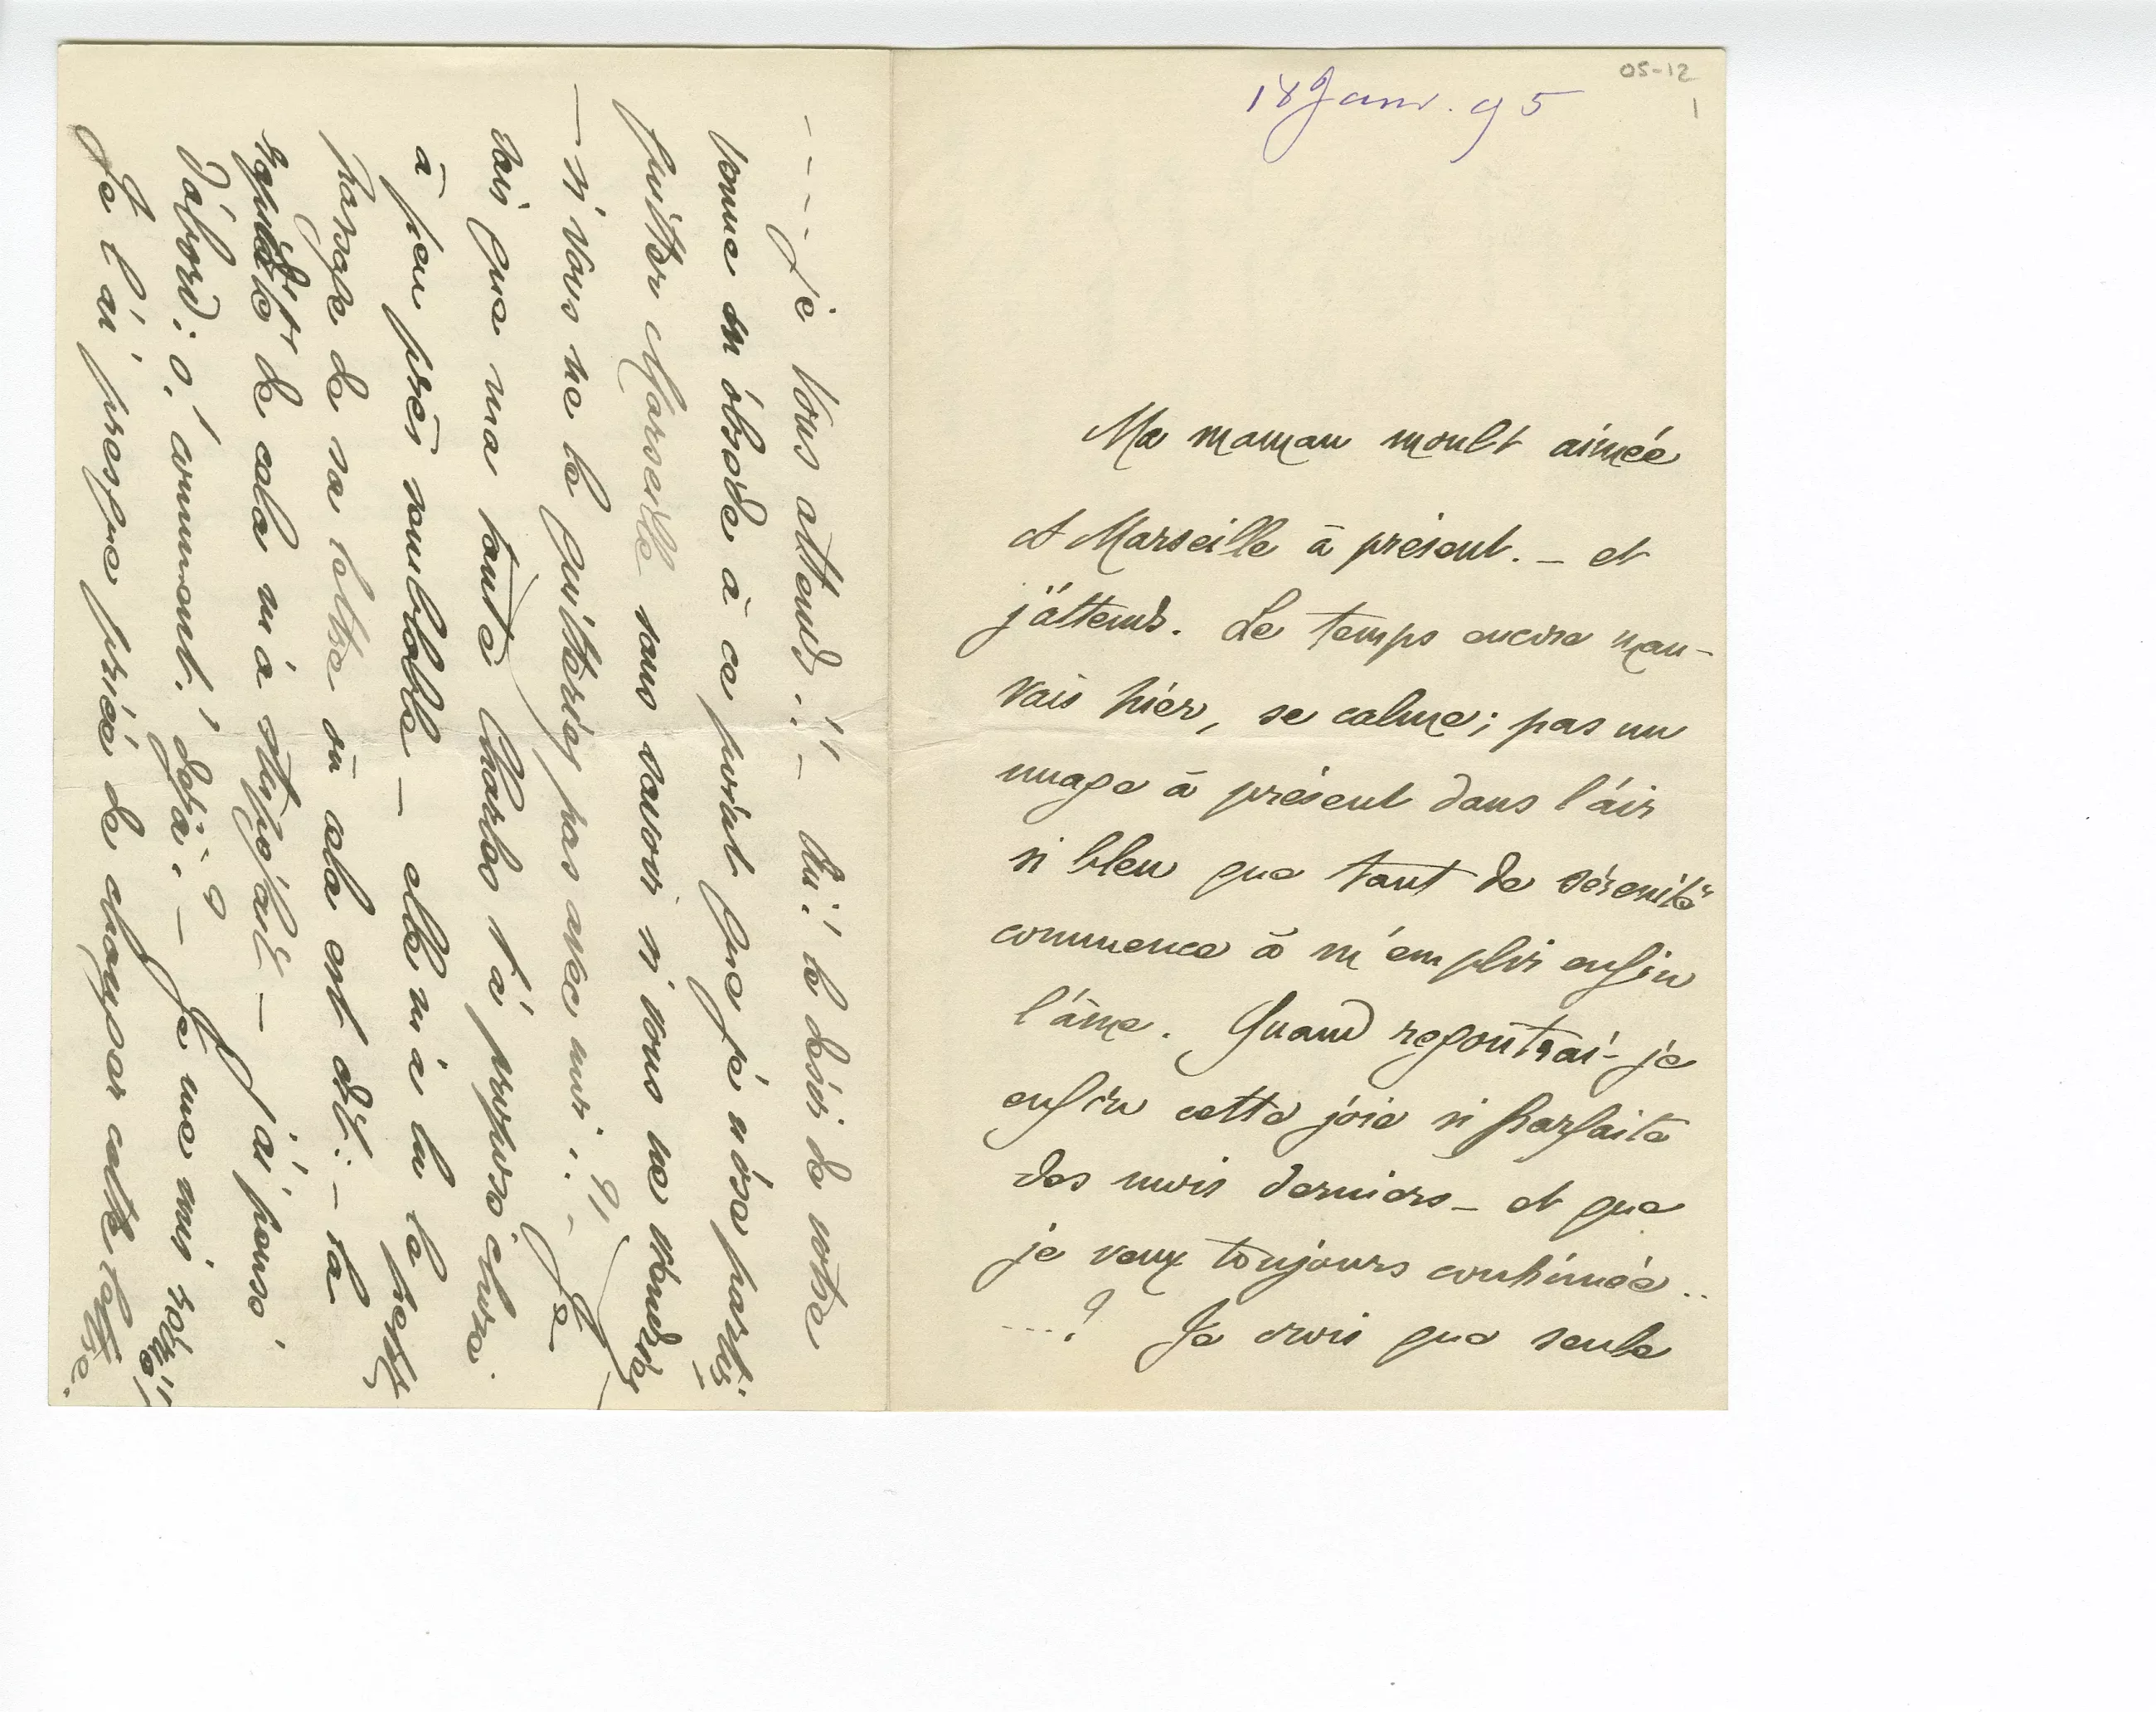 05-12
1
18 Janv. 95
Ma maman moult aimée
et Marseille à présent. – et
j'attends. Le temps encore mau-
vais hier, se calme ; pas un
nuage à présent dans l'air
si bleu que tant de sérénité
commence à m'emplir enfin
l'âme. Quand regoûtrai-je
enfin cette joie si parfaite
des mois derniers – et que
je veux toujours continuée ..
...? Je crois que seule
- - - je vous attends !! – oui ! le désir de votre
venue m'obsède à ce point que je n'ose partir
quitter Marseille sans savoir si vous ne viendrez
– si vous ne le quitteriez pas avec moi ..?, – Je
sais que ma tante Charles t'a proposé chose
à peu près semblable – elle m'a lu le
passage de sa lettre où cela est dit. – la
de cela m'a stupéfait – J'ai pensé
d'abord : "o, comment ! déjà ? – Je me suis
Je l'ai presque priée de changer cette lettre.